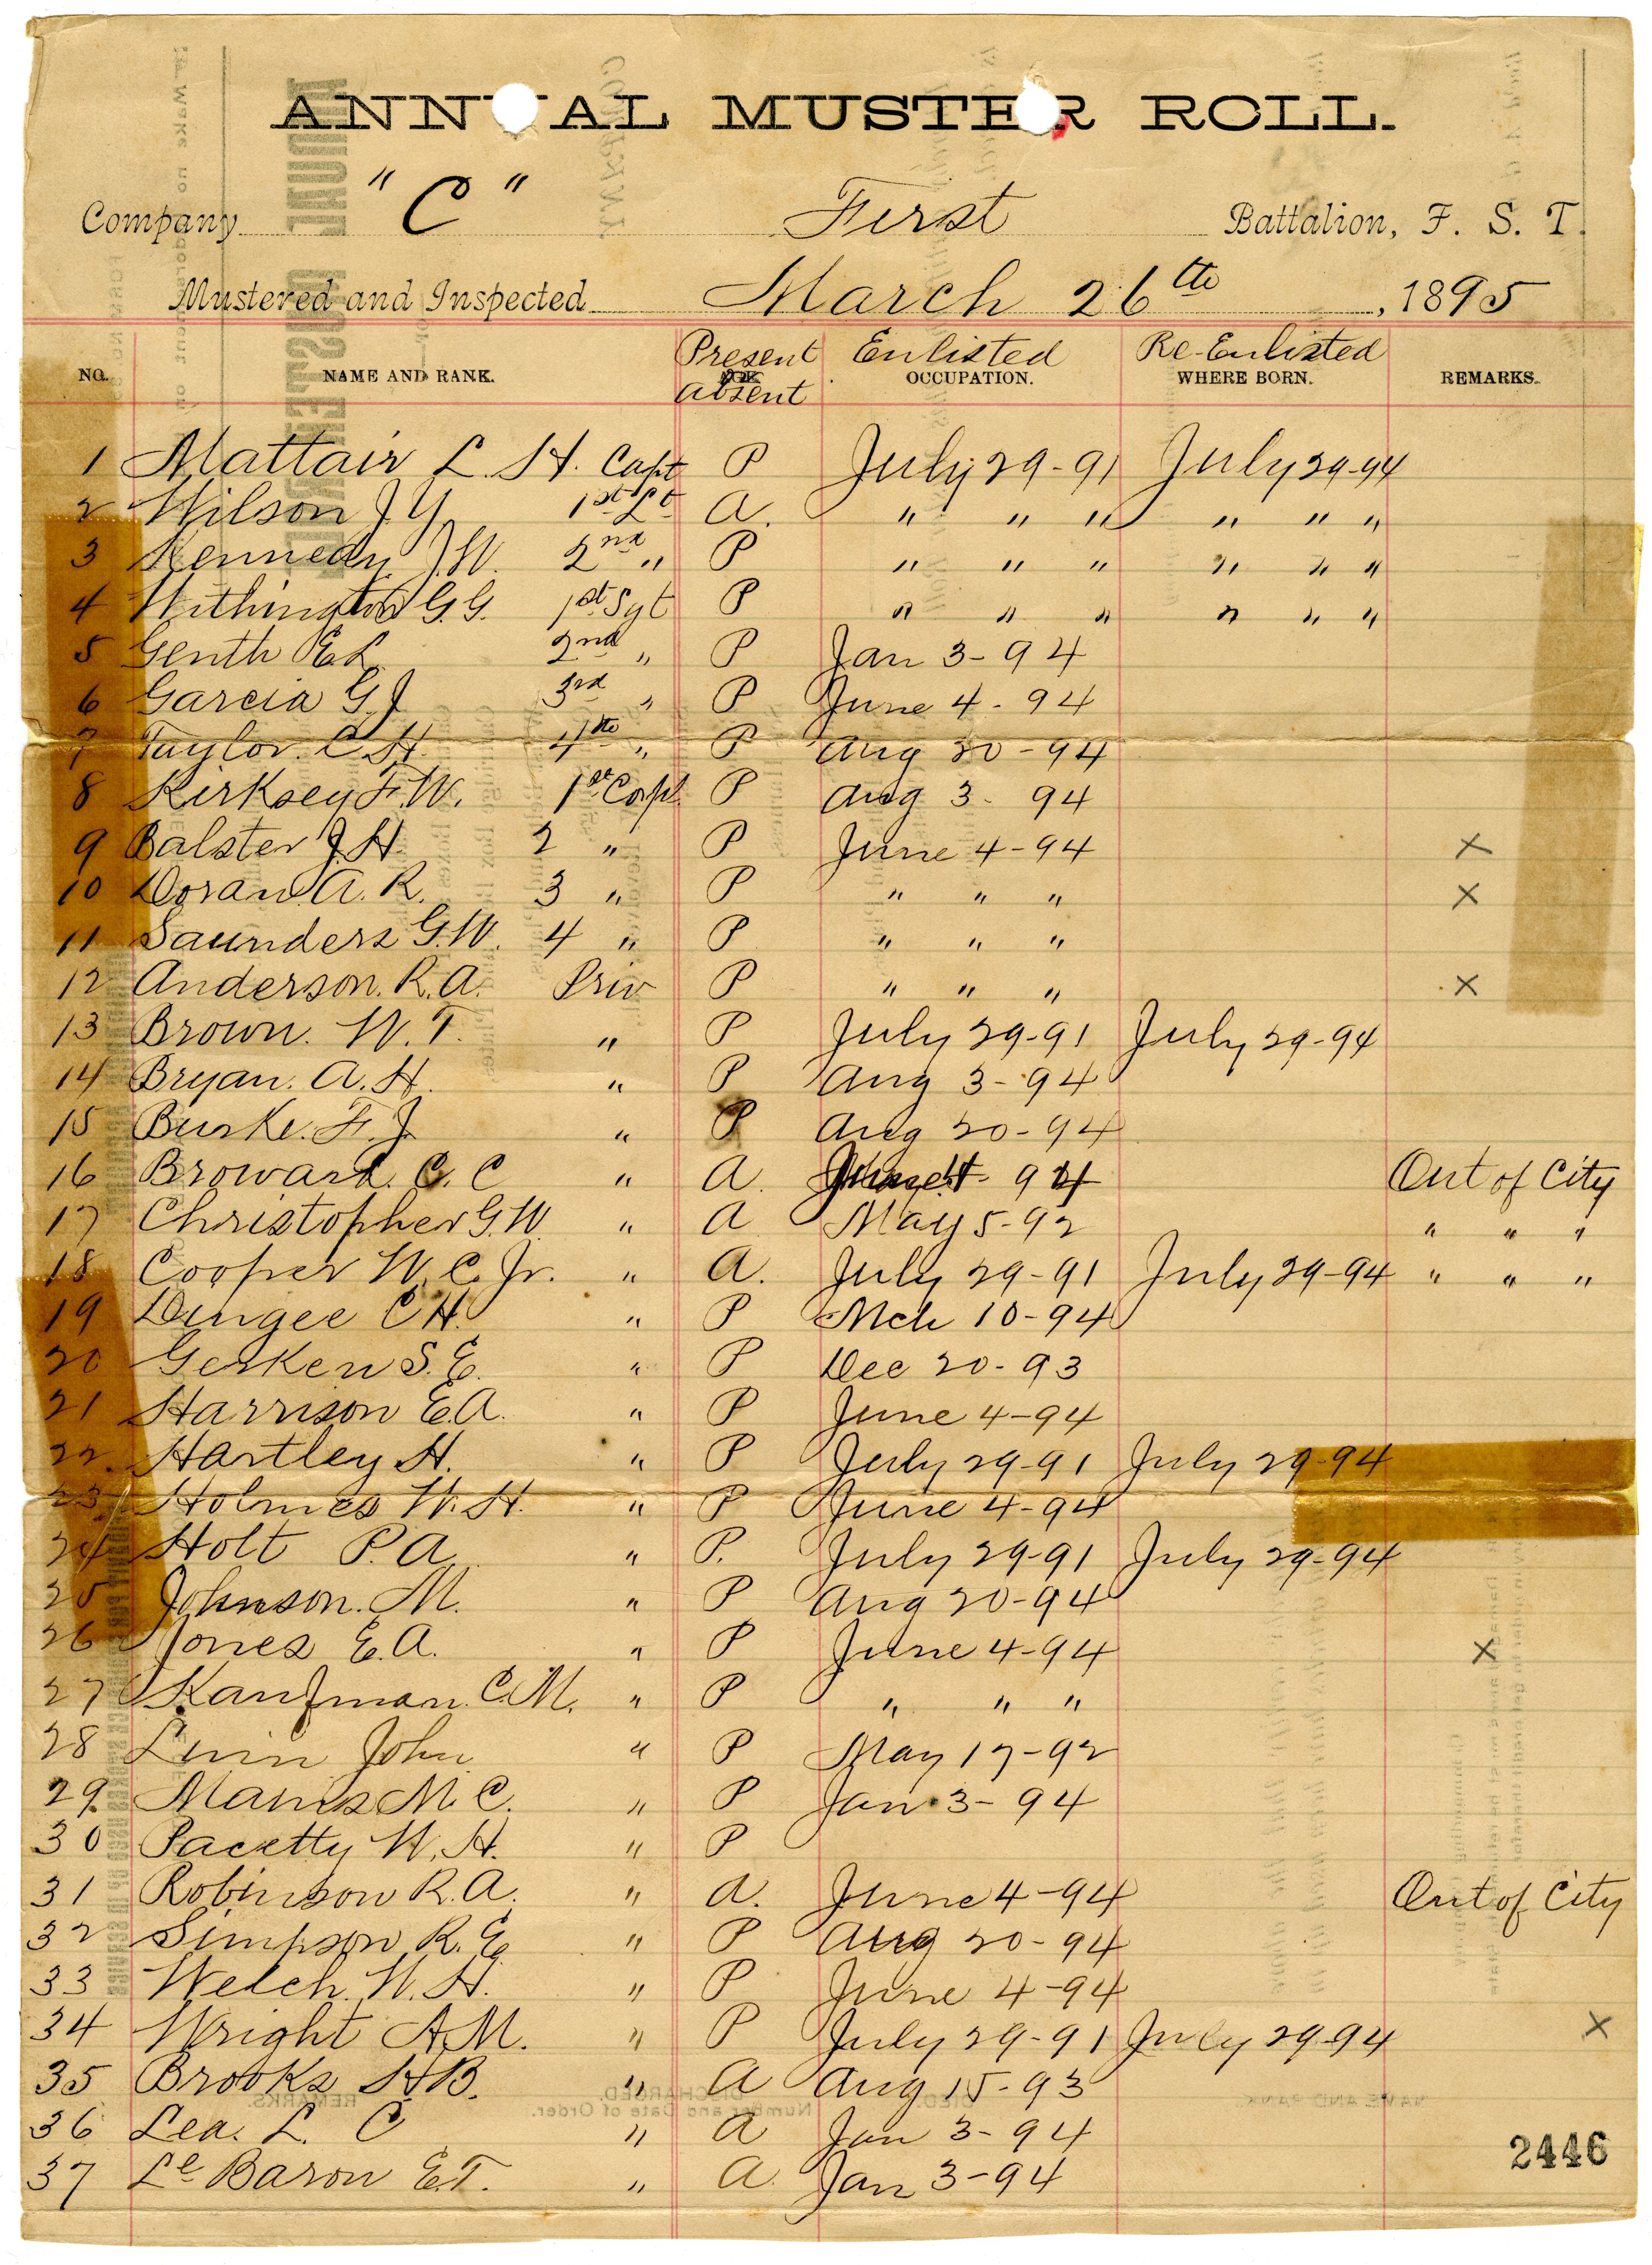 ANNUAL MUSTER ROLL.
Company "C" First Battalion, F. S. T.
Mustered and Inspected March 26th, 1895
NO. NAME AND RANK. Present or Absent Enlisted OCCUPATION. Re-Enlisted WHERE BORN. REMARKS.
1 Mattair L. H. Capt P July 29-91 July 29-94
2 Wilson J. Y. 1st Lt A. " " " " " "
3 Kennedy J. W. 2nd " P " " " " " "
4 Withington G. G. 1st Sgt P " " " " " "
5 Genth E L 2nd " P Jan 3-94
6 Garcia G. J 3rd " P June 4-94
7 Taylor. C H. 4th " P Aug 20-94
8 Kirksey F. W. 1st Corpl. P Aug 3-94
9 Balster J. H. 2 " P June 4-94 X
10 Doran. A. R. 3 " P " " " X
11 Saunders G. W. 4 " P " " "
12 Anderson. R. A. Priv P " " " X
13 Brown. W. T. " P July 29-91 July 29-94
14 Bryan. A. H. " P Aug 3-94
15 Burke. F. J. " P Aug 20-94
16 Broward. C. C " A. 94 Out of City
17 Christopher G. W. " A May 5-92 " " "
18 Cooper W. C. Jr. " A. July 29-91 July 29-94 " " "
19 Dungee C H. " P Mch 10-94
20 Gerken S. E. " P Dec 20-93
21 Harrison E. A. " P June 4-94
22. Hartley H. " P July 29-91 July 29-94
23. Holmes W. H. " P June 4-94
24 Holt P. A. " P. July 29-91 July 29-94
25 Johnson. M. " P Aug 20-94
26 Jones E. A. " P June 4-94 X
27 Kaufman. C. M. " P " " "
28 John " P May 17-92
29. M. C. " P Jan 3-94
30 Pacetty W. H. " P
31 Robinson R. A. " A. June 4-94 Out of City
32 Simpson R. E. " P Aug 20-94
33 Welch. W. H. " P June 4-94
34 Wright A. M. " P July 29-91 July 29-94 X
35 Brooks H B. " A Aug 15-93
36 Lea. L. C " A Jan 3-94
37 Le Baron E. T. " A. Jan 3-94
2446